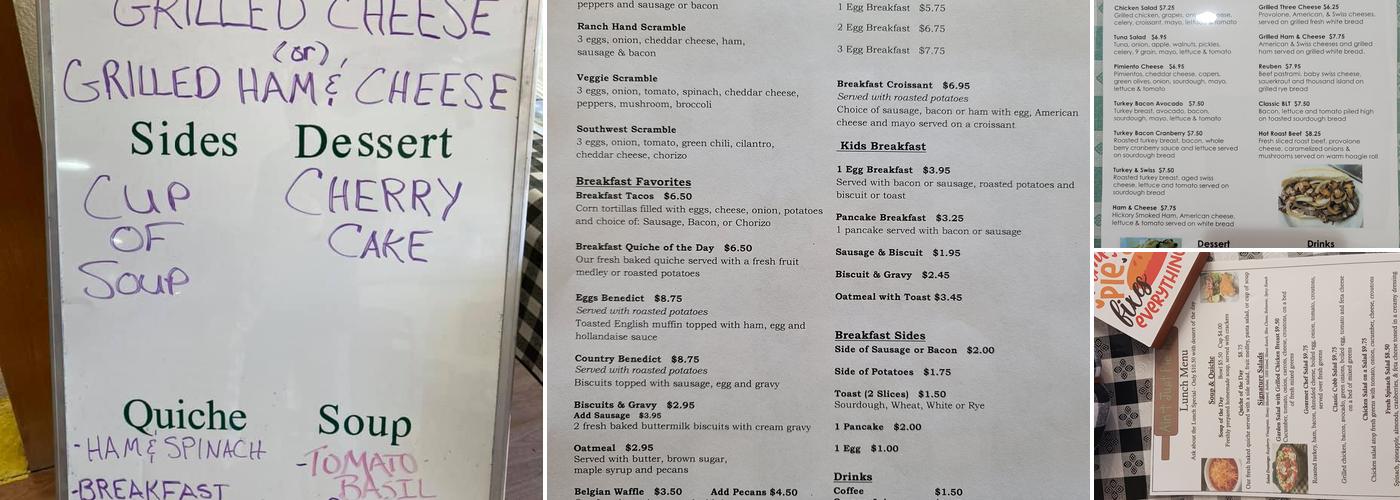 GRILLED CHEESE
(or)
GRILLED HAM & CHEESE
Sides
Dessert
CUP
OF
SOUP
CHERRY
CAKE
Quiche
Soup
-HAM & SPINACH
-BREAKFAST
-TOMATO
BASIL
peppers and sausage or bacon
Ranch Hand Scramble
3 eggs, onion, cheddar cheese, ham,
sausage & bacon
Veggie Scramble
3 eggs, onion, tomato, spinach, cheddar cheese,
peppers, mushroom, broccoli
Southwest Scramble
3 eggs, onion, tomato, green chili, cilantro,
cheddar cheese, chorizo
Breakfast Favorites
Breakfast Tacos $6.50
Corn tortillas filled with eggs, cheese, onion, potatoes
and choice of: Sausage, Bacon, or Chorizo
Breakfast Quiche of the Day $6.50
Our fresh baked quiche served with a fresh fruit
medley or roasted potatoes
Eggs Benedict $8.75
Served with roasted potatoes
Toasted English muffin topped with ham, egg and
hollandaise sauce
Country Benedict $8.75
Served with roasted potatoes
Biscuits topped with sausage, egg and gravy
Biscuits & Gravy $2.95
Add Sausage $3.95
2 fresh baked buttermilk biscuits with cream gravy
Oatmeal $2.95
Served with butter, brown sugar,
maple syrup and pecans
Belgian Waffle $3.50 Add Pecans $4.50
1 Egg Breakfast $5.75
2 Egg Breakfast $6.75
3 Egg Breakfast $7.75
Breakfast Croissant $6.95
Served with roasted potatoes
Choice of sausage, bacon or ham with egg, American
cheese and mayo served on a croissant
Kids Breakfast
1 Egg Breakfast $3.95
Served with bacon or sausage, roasted potatoes and
biscuit or toast
Pancake Breakfast $3.25
1 pancake served with bacon or sausage
Sausage & Biscuit $1.95
Biscuit & Gravy $2.45
Oatmeal with Toast $3.45
Breakfast Sides
Side of Sausage or Bacon $2.00
Side of Potatoes $1.75
Toast (2 Slices) $1.50
Sourdough, Wheat, White or Rye
1 Pancake $2.00
1 Egg $1.00
Drinks
Coffee $1.50
Chicken Salad $7.25
Grilled chicken, grapes,
celery, croissant, mayo, lettuce & tomato
Tuna Salad $6.95
Tuna, onion, apple, walnuts, pickles,
celery, 9 grain, mayo, lettuce & tomato
Pimiento Cheese $6.95
Pimientos, cheddar cheese, capers,
green olives, onion, sourdough, mayo,
lettuce & tomato
Turkey Bacon Avocado $7.50
Turkey breast, avocado, bacon,
sourdough, mayo, lettuce & tomato
Turkey Bacon Cranberry $7.50
Roasted turkey breast, bacon, whole
berry cranberry sauce and lettuce served
on sourdough bread
Turkey & Swiss $7.50
Roasted turkey breast, aged swiss
cheese, lettuce and tomato served on
sourdough bread
Ham & Cheese $7.75
Hickory Smoked Ham, American cheese,
lettuce & tomato served on white bread
Dessert
Grilled Three Cheese $6.25
Provolone, American, & Swiss cheeses,
served on grilled fresh white bread
Grilled Ham & Cheese $7.75
American & Swiss cheeses and grilled
ham served on grilled white bread.
Reuben $7.95
Beef pastrami, baby swiss cheese,
sauerkraut and thousand island on
grilled rye bread
Classic BLT $7.50
Bacon, lettuce and tomato piled high
on toasted sourdough
Hot Roast Beef $8.25
Fresh sliced roast beef, provolone
cheese, caramelized onions &
mushrooms served on warm hoagie roll
Drinks
PIE
fixes
EVERYTHING
Lunch Menu
Ask about the Lunch Special - Only $10.50 with dessert of the day
Soup & Quiche
Soup of the Day Bowl $5.50 Cup $4.00
Freshly prepared homemade soup, served with crackers
Quiche of the Day $8.75
Our fresh baked quiche served with a side salad, fruit medley, pasta salad, or cup of soup
Signature Salads
Garden Salad with Grilled Chicken Breast $9.50
Cucumber, tomato, onion, carrots, cheese, croutons, on a bed
of fresh mixed greens
Gourmet Chef Salad $9.75
Roasted turkey, ham, bacon, shredded cheese, boiled egg, onion, tomato, croutons,
served over fresh greens
Classic Cobb Salad $9.75
Grilled chicken, bacon, avocado, green onions, boiled egg, tomato and feta cheese
on a bed of mixed greens
Chicken Salad on a Salad $9.75
Chicken salad atop fresh greens with tomato, onion, cucumber, cheese, croutons
Fresh Spinach Salad $8.50